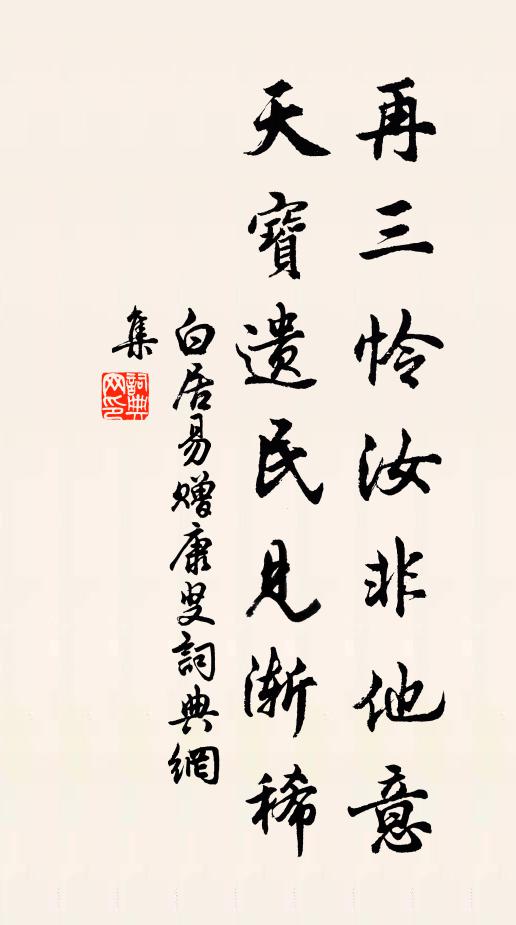 再三怜汝非他意
天寶遗民見渐稀
白居易赠康叟詞典網
集
詞典
网印